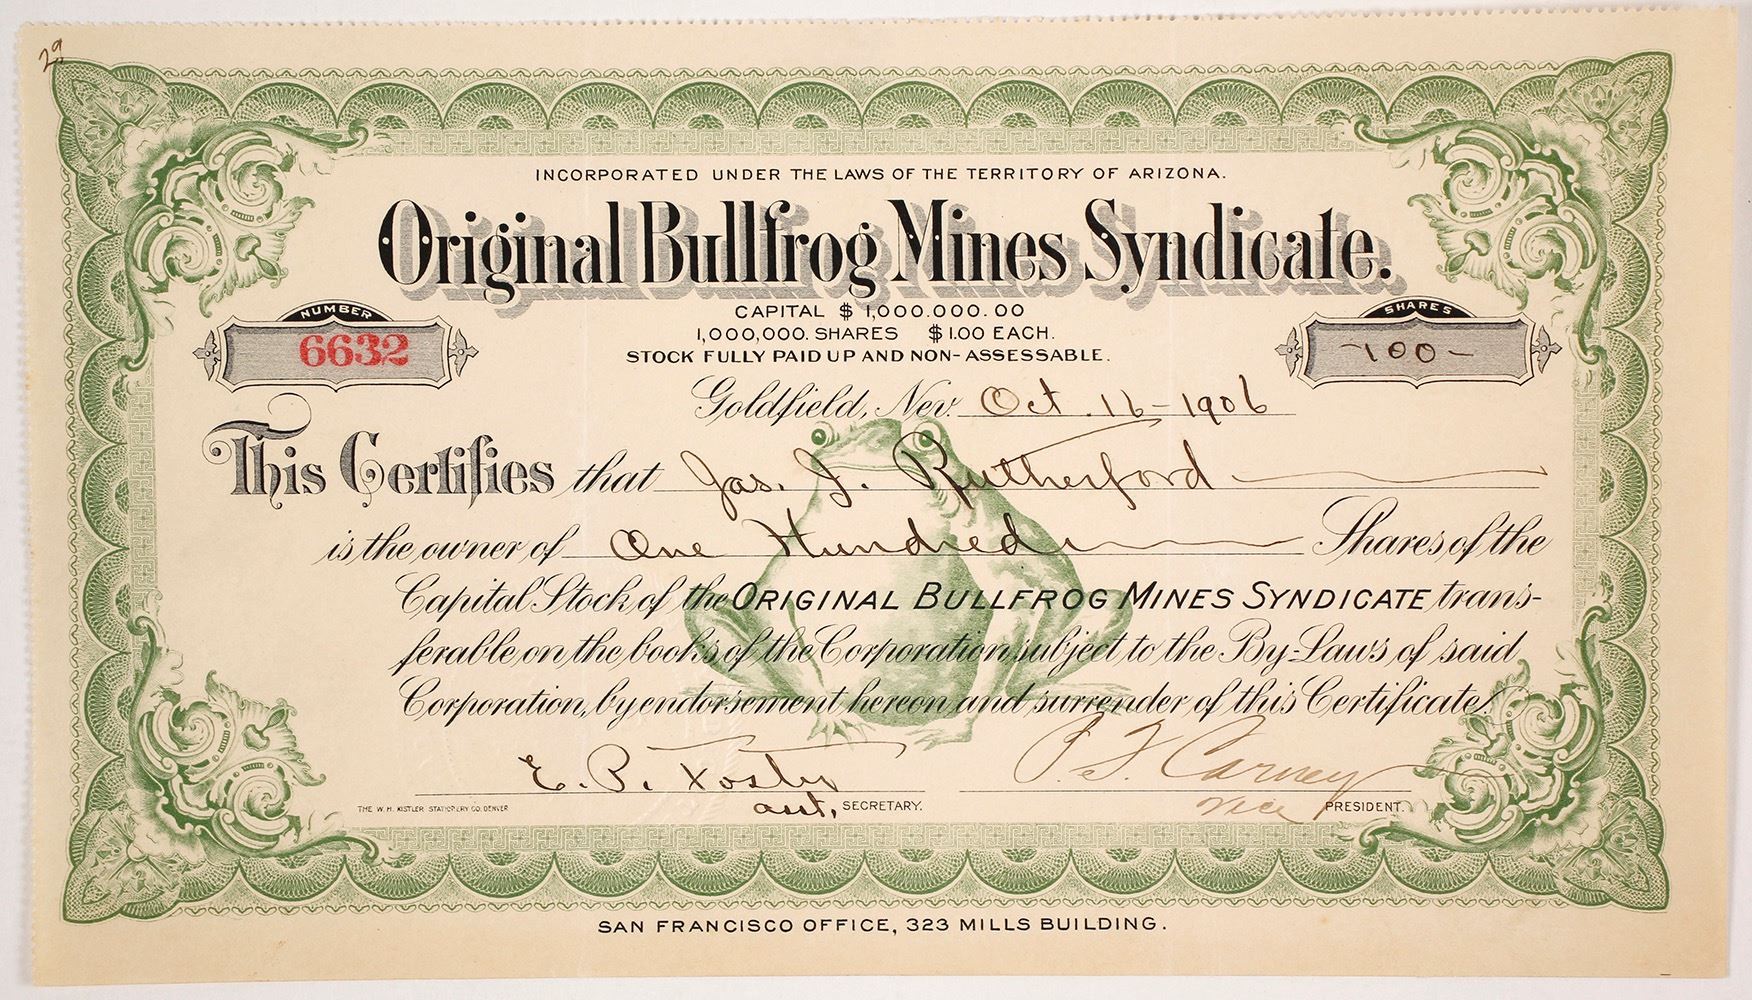 29
INCORPORATED UNDER THE LAWS OF THE TERRITORY OF ARIZONA.
Original Bullfrog Mines Syndicate.
CAPITAL $ 1,000.000.00
1,000,000. SHARES $1.00 EACH.
STOCK FULLY PAID UP AND NON-ASSESSABLE.
NUMBER
6632
SHARES
-100-
Goldfield, Nev. Oct. 16-1906
This Certifies that Jas. J. Rutherford
is the owner of One Hundred Shares of the
Capital Stock of the ORIGINAL BULLFROG MINES SYNDICATE trans-
ferable on the books of the Corporation subject to the By-Laws of said
Corporation, by endorsement hereon and surrender of this Certificate.
E. P. Carney
THE W. H. KISTLER STATIONERY CO. DENVER
asst, SECRETARY.
vice PRESIDENT.
SAN FRANCISCO OFFICE, 323 MILLS BUILDING.